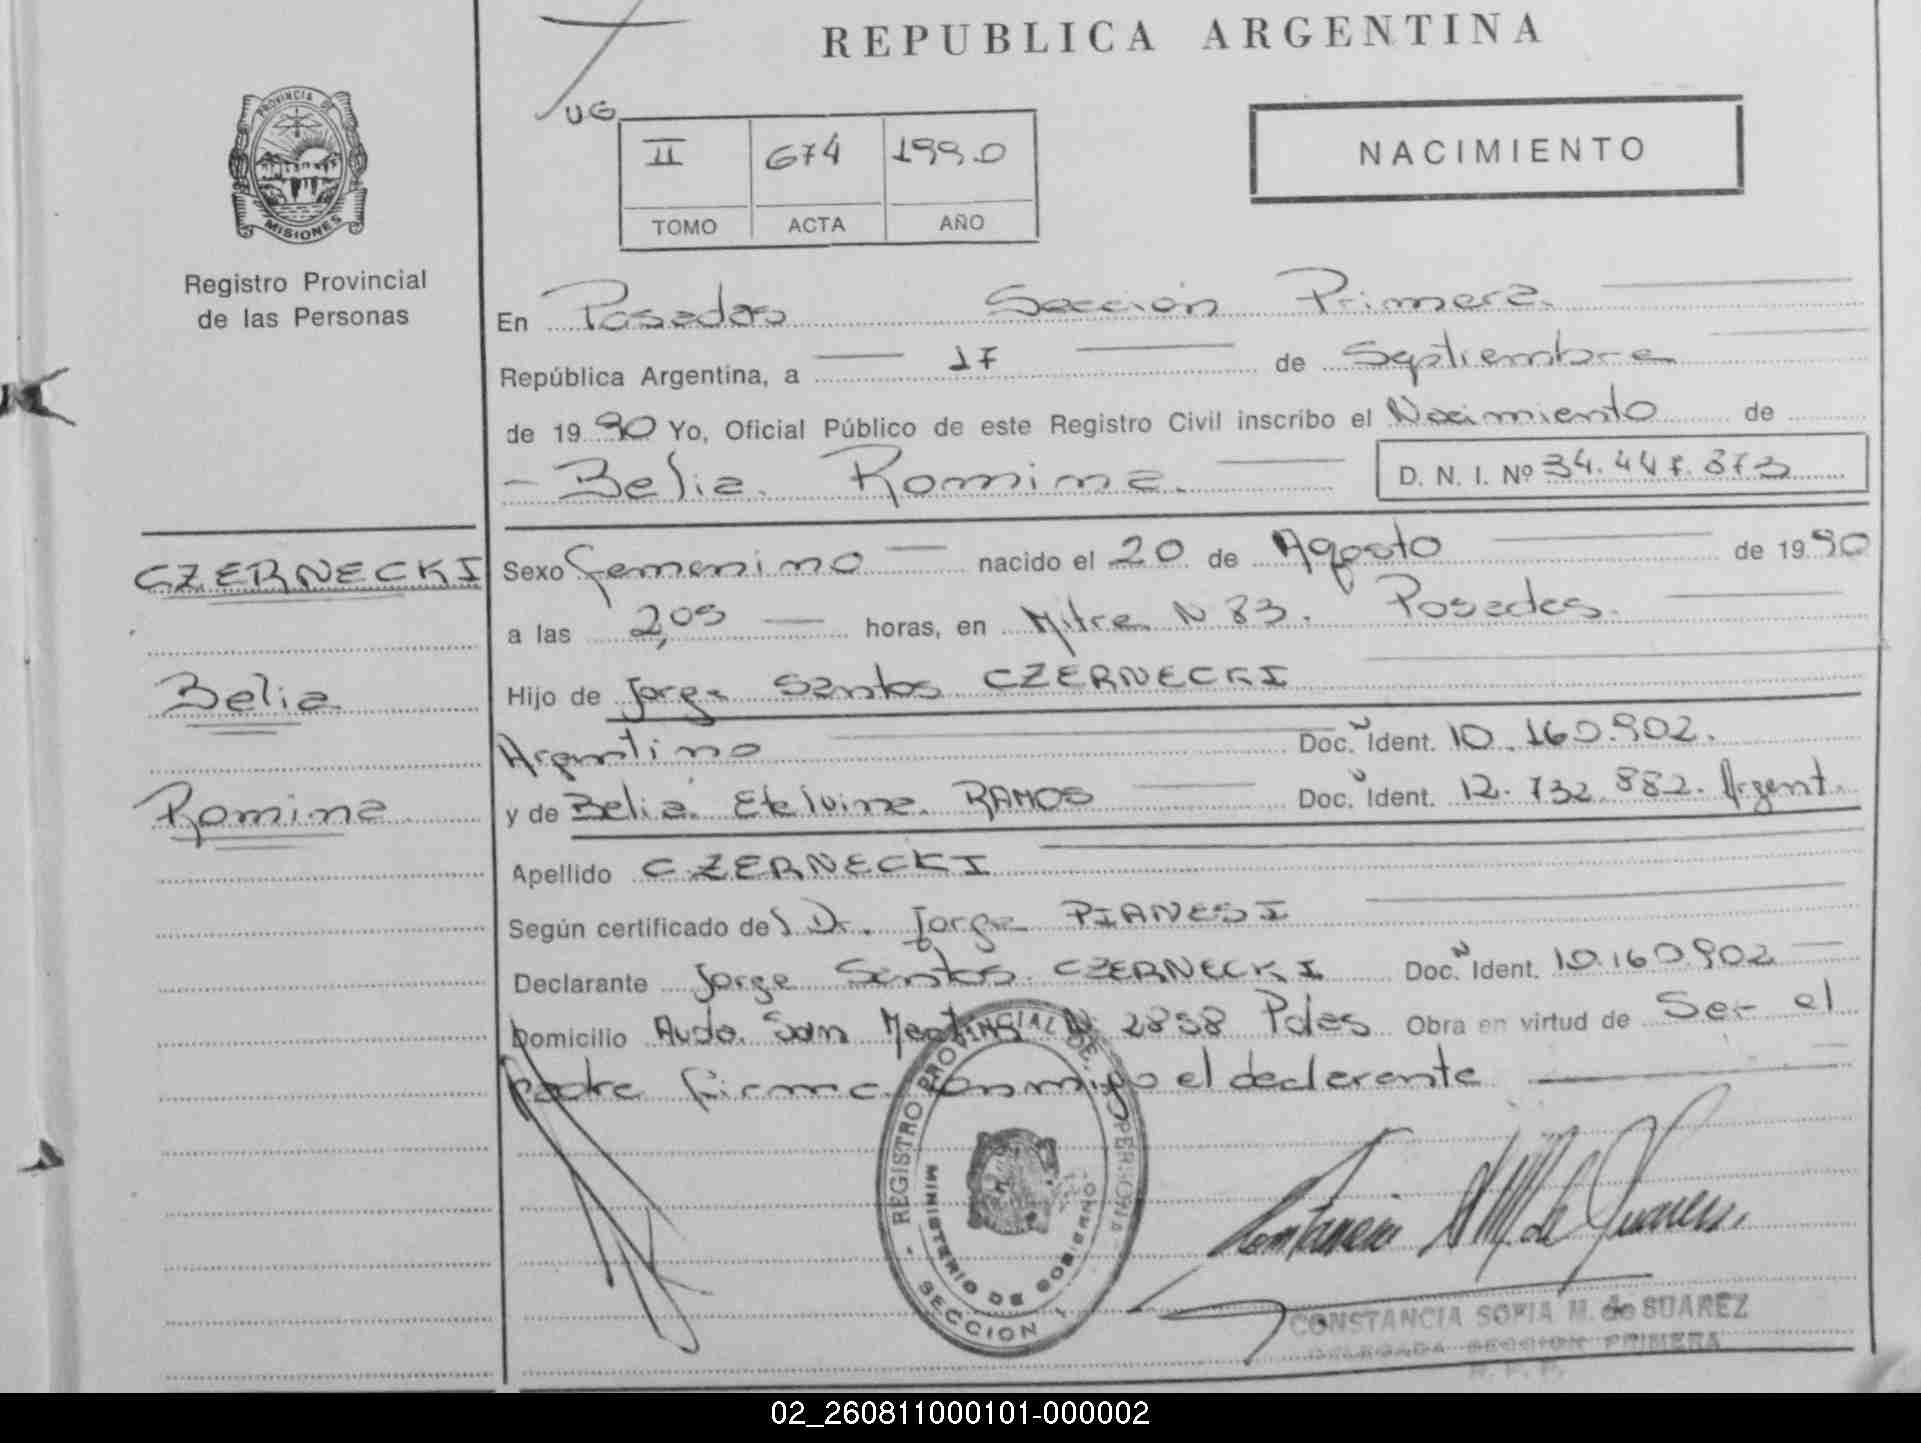 REPUBLICA ARGENTINA
PROVINCIA DE
MISIONES
Registro Provincial
de las Personas
UG
II 674 1990
TOMO ACTA AÑO
NACIMIENTO
En Posadas Sección Primera
República Argentina, a 17 de Septiembre
de 1990 Yo, Oficial Público de este Registro Civil inscribo el Nacimiento de
Belia Romina D. N. I. Nº 34.447.373
CZERNECKI
Belia
Romina
Sexo femenino nacido el 20 de Agosto de 1990
a las 2,05 horas, en Mitre N 83. Posadas.
Hijo de Jorge Santos CZERNECKI
Argentino Doc. Ident. 10.160.902.
y de Belia Etelvina RAMOS Doc. Ident. 12.732.882. Argent.
Apellido CZERNECKI
Según certificado del Dr. Jorge PIANESI
Declarante Jorge Santos CZERNECKI Doc. Ident. 10.160.902
Domicilio Avda. San Martin N 2858 Pdas Obra en virtud de Ser el
padre firma conmigo el declarante
REGISTRO PROVINCIAL DE PERSONA
MINISTERIO DE GOBIERNO
SECCION 1
CONSTANCIA SOFIA M. de SUAREZ
DELEGADA SECCION PRIMERA
R. P. P.
02_260811000101-000002